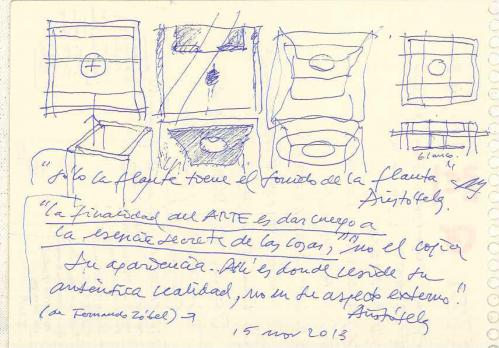 blanco.
"Sólo la flauta tiene el sonido de la flauta
Aristóteles.
"la finalidad del ARTE es dar cuerpo a
la esencia secreta de las cosas," "no el copiar
su apariencia. Allí es donde reside su
auténtica realidad, no en su aspecto externo."
(de Fernando Zóbel) → Aristóteles
15 nov 2013